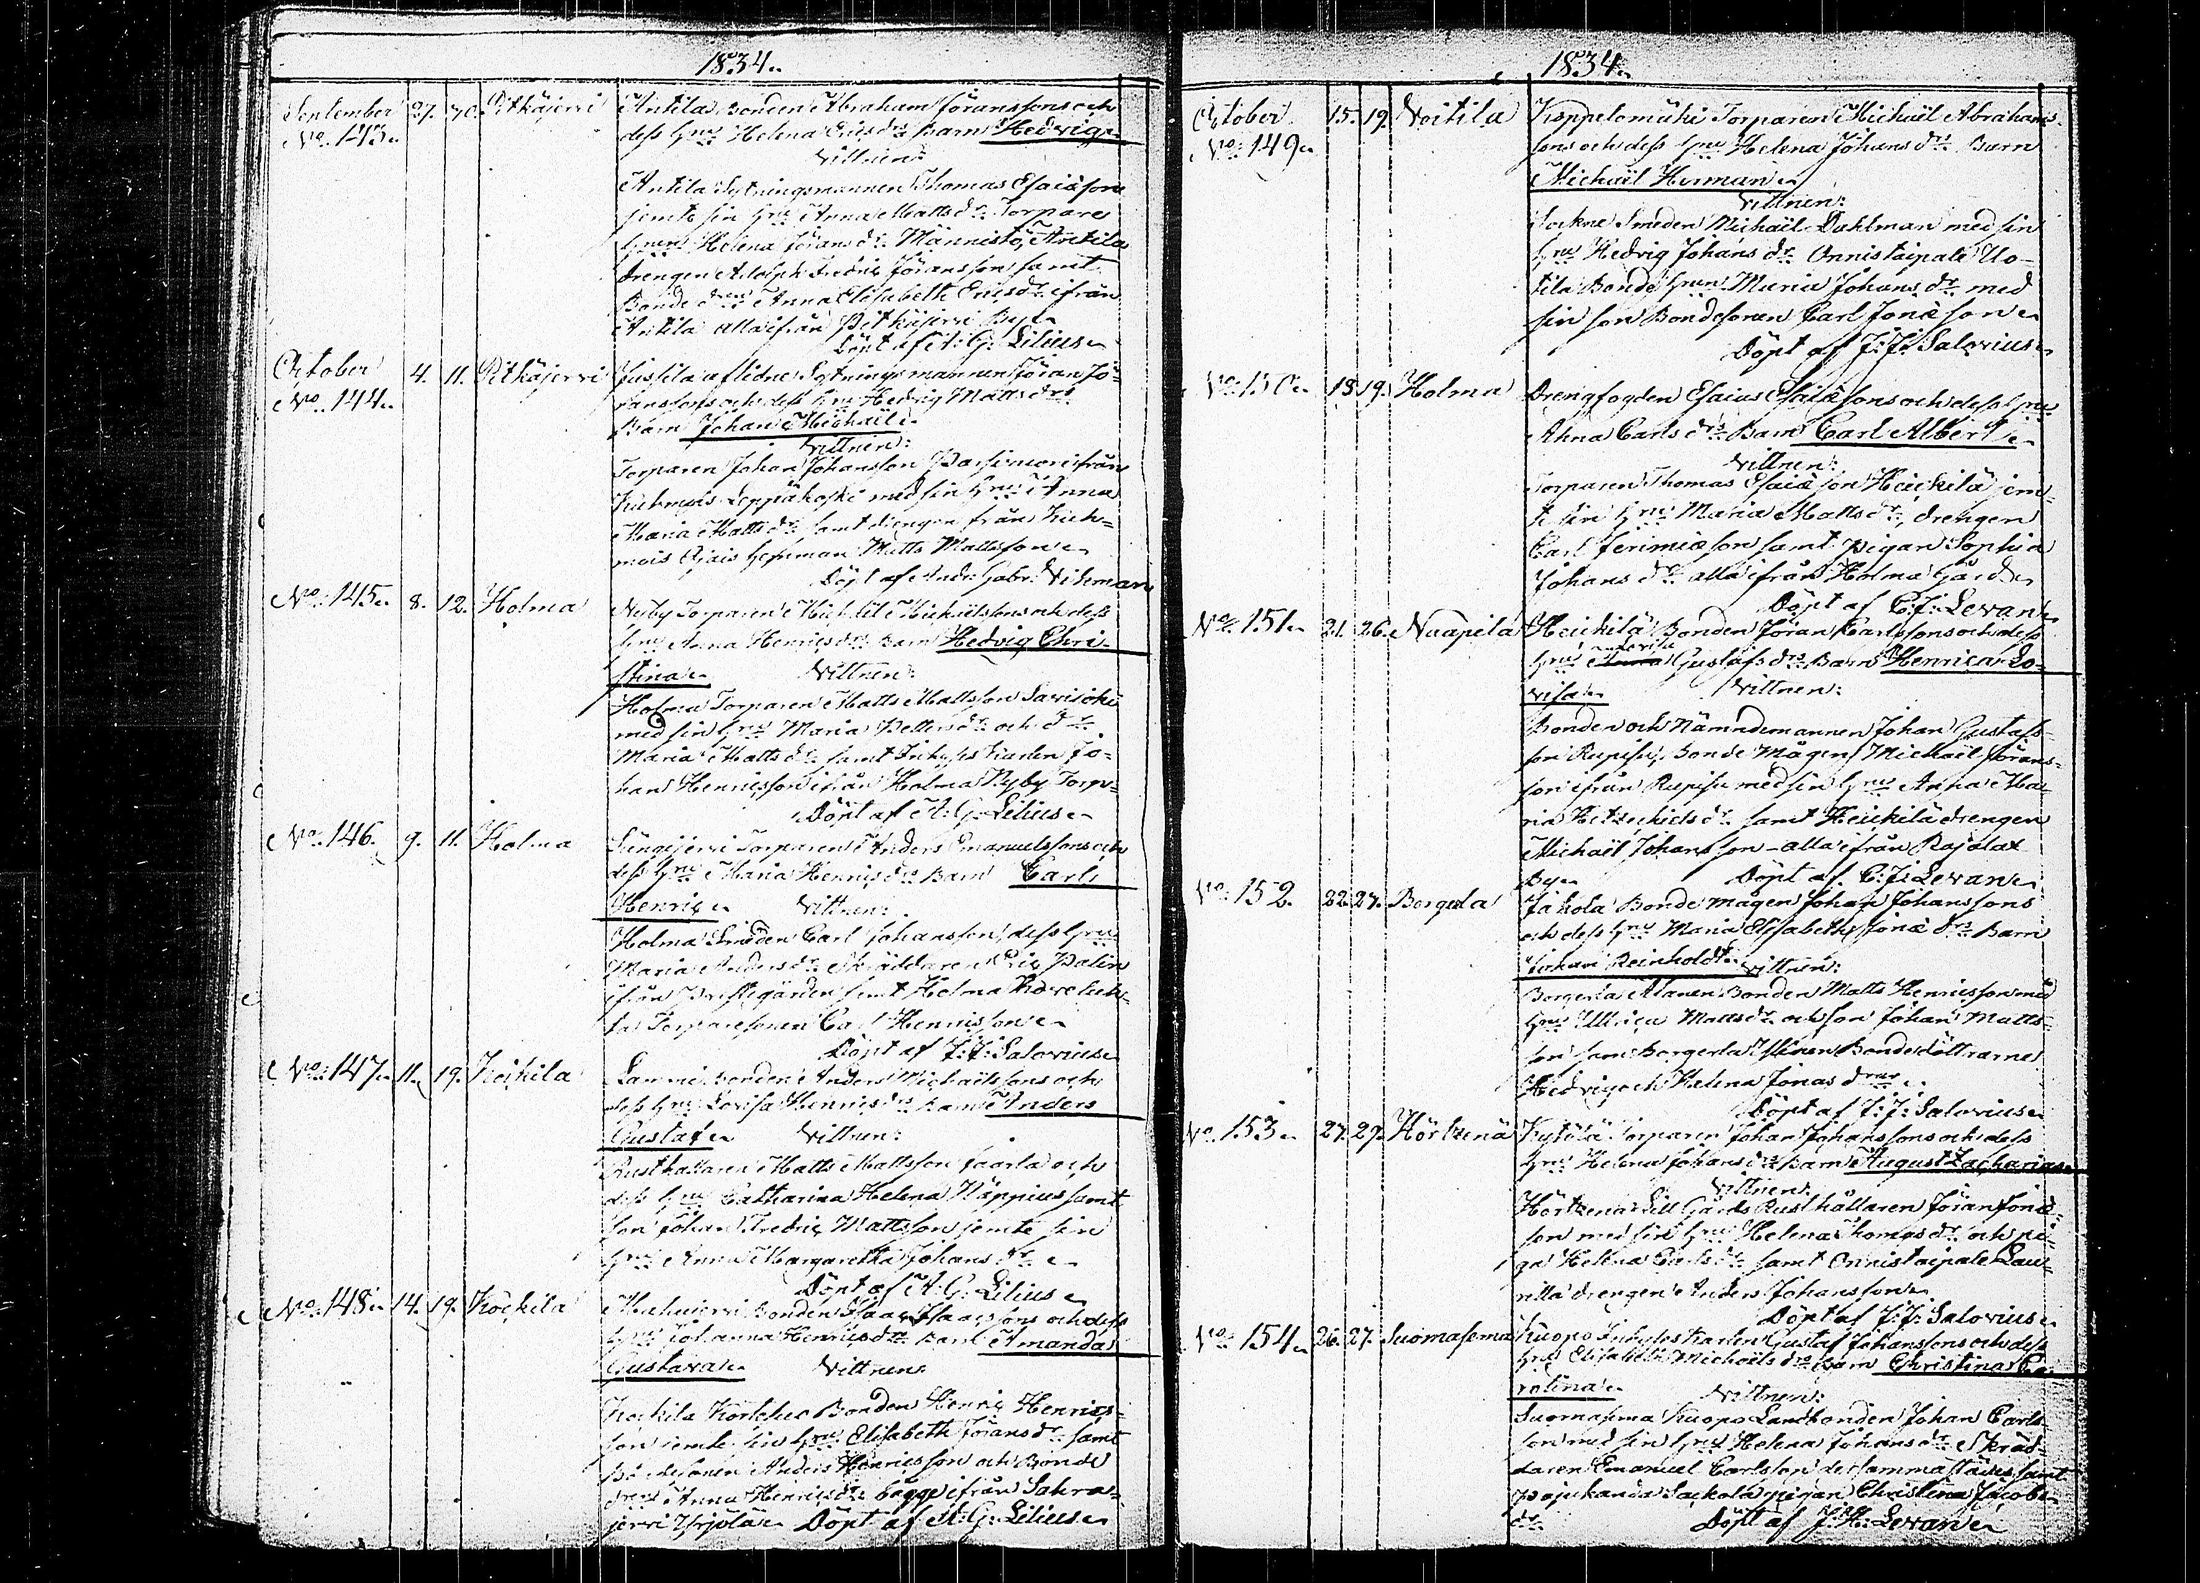 1834.
September 27. 30. Pitkäjervi Antila Bonden Abraham Jöranssons och
No. 143. dess Hru Helena Ericsdrs Barn Hedvig.
Vittnen:
Antila Sytningsmannen Thomas Esaiæson
jemte sin Hru Anna Mattsdr. Torpare
Hrun Helena Jöransdr. Männistö, Antila
drengen Adolph Fredric Jöransson samt
Bonde dren Anna Elisabeth Ericsdr. ifrån
Antila alla ifrån Pitkäjervi By.
Döpt af A: G: Lilius.
October 4. 11. Pitkäjervi Jussila aflidne Sytningsmannen Jöran Jö-
No. 144. ranssons och dess Hru Hedvig Mattsdrs
Barn Johan Michaël.
Vittnen:
Torparen Johan Johansson ifrån
Leppäkoski med sin Hru Anna
Maria Mattsdr. samt drengen från Kuh-
mois Matts Mattsson.
Döpt af Andr: Gabr: Vihman
No: 145. 8. 12. Holma Nyby Torparen Michaël Michaëlssons och dess
Hru Anna Henricsdrs Barn Hedvig Chri-
stina. Vittnen:
Holma Torparen Matts Mattsson Savisoki
med sin Hru Maria Pettersdr. och dr.
Maria Mattsdr. samt Inhyses Karlen Jo-
han Henricsson ifrån Holma Nyby Torp.
Döpt af A: G: Lilius.
No. 146. 9. 11. Holma Torparen Anders Emanuelssons och
dess Hru Maria Henricsdrs Barn Carl
Henric. Vittnen:
Holma Smeden Carl Johansson, dess Hru
Maria Andersdr. Skräddaren Eric Palin
ifrån Prestegården samt Holma
Torparesonen Carl Henricsson.
Döpt af J: J: Salovius.
No: 147. 11. 19. Kockila Lammi Bonden Anders Michaëlssons och
dess Hru Lovisa Henricsdrs Barn Anders
Gustaf. Vittnen:
Rusthållaren Matts Mattsson Jaarla och
dess Hru Catharina Helena Käppius samt
son Johan Fredric Mattsson jemte sin
Hru Anna Margaretha Johansdr.
Döpt af A: G: Lilius.
No. 148. 14. 19. Kockila Bonden Isaac Isaacssons och dess
Hru Johanna Henricsdrs Barn Amanda
Gustava. Vittnen:
Kockila Bonden Henric Henrics-
son jemte sin Hru Elisabeth Jöransdr. samt
Bondesonen Anders Henricsson och Bonde
dren Anna Henricsdr. bägge ifrån Sakra-
jervi Yrjölä. Döpt af A: G: Lilius.
1834.
October 15. 19. Voitila Koppelomäki Torparen Michaël Abrahams-
No: 149. sons och dess Hru Helena Johansdrs Barn
Michaël Herman.
Vittnen:
Sockne Smeden Michaël Dahlman med sin
Hru Hedvig Johansdr. Onnistaipale Uo-
tila Bonde Hrun Maria Johansdr. med
sin son Bondesonen Carl Jonæson.
Döpt af J: J: Salovius.
No: 150. 18 19. Holma Drengfogden Esaias Esaiæsons och dess Hru
Anna Carlsdrs Barn Carl Albert.
Vittnen:
Torparen Thomas Esaiæson Heickilä jem-
te sin Hru Maria Mattsdr., drengen
Carl Jerimiæson samt Pigan Sophia
Johansdr. alla ifrån Holma Gård.
Döpt af C: J: Levan.
No: 151. 21. 26. Naapila Heickilä Bonden Jöran Carlssons och dess
Hru Anna Gustafsdrs Barn Henrica Lo-
visa. Vittnen:
Bonden och Nämndemannen Johan Gustafs-
son Rupisu, Bonde Mågen Michaël Jörans-
son ifrån Rupisu med sin Hru Anna Ma-
ria Hetsekielsdr. samt Heickilä drengen
Michaël Johansson – alla ifrån Rajalax
By. Döpt af C: J: Levan.
No: 152. 22. 27. Borgerla Jakola Bonde mågen Johan Johanssons
och dess Hru Maria Elisabeth Jonædrs Barn
Johan Reinholdt. Vittnen:
Borgerla Alanen Bonden Matts Henricsson med
Hru Ullrica Mattsdr. och son Johan Matts-
son samt Borgerla Ylinen Bondedöttrarne
Hedvig och Helena Jonas drar.
Döpt af J: J: Salovius.
No. 153. 27. 29. Hörtzenä Kytölä Torparen Johan Johanssons och dess
Hru Helena Johansdrs Barn August Zacharias.
Vittnen:
Hörtzenä Lill Gårds Rusthållaren Jöran Jonæ-
son med sin Hru Helena Thomasdr. och pi-
ga Helena Carlsdr. samt Onnistaipale Lau-
rilla drengen Anders Johansson.
Döpt af J: J: Salovius.
No: 154. 26. 27. Suomasema Kuopo Inhyses Karlen Gustaf Johanssons och dess
Hru Elisabeth Michaëlsdrs Barn Christina Ca-
rolina. Vittnen:
Suomasema Kuopo Landbonden Johan Carls-
son med sin Hru Helena Johansdr. Skräd-
daren Emanuel Carlsson dersammastädes samt
Sackola pigan Christina Jacobs
dr. Döpt af J: H: Levan.